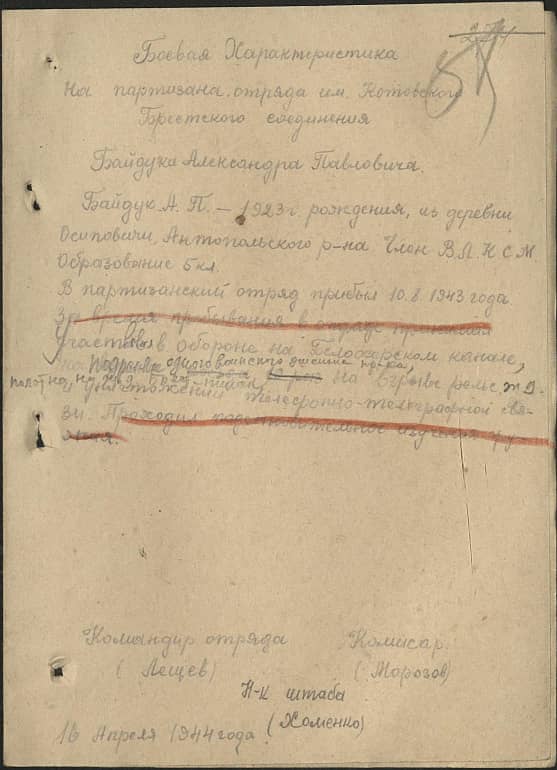 Боевая Характеристика
На партизана отряда им. Котовского
Брестского соединения
Байдука Александра Павловича.
Байдук А. П. – 1923 г. рождения, из деревни
Осиповичи, Антопольского р-на Член ВЛКСМ.
Образование 5 кл.
В партизанский отряд прибыл 10.8.1943 года.
За время пребывания в отряде принимал
участвовал в обороне на Белозерском канале,
на подрыве одного воинского эшелона пр-ка,
на взрыве рельс ж.д.
полотна, на
и уничтожении телефонно-телеграфной свя-
зи. Проходил подготовительное изучение ру-
Командир отряда Комисар.
(Лещев) (Морозов)
Н-к штаба
(Хоменко)
16 Апреля 1944 года.